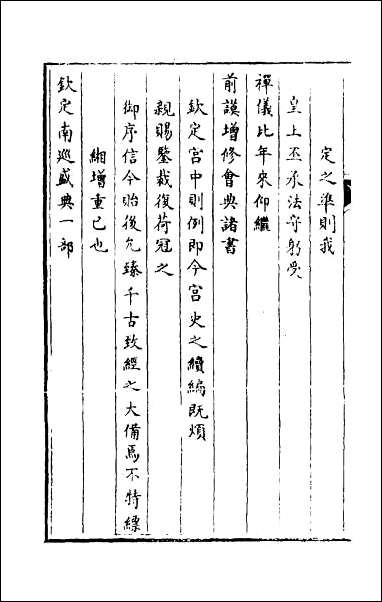 定之準則我
皇上丕承法守躬受
禪儀比年來仰繼
前謨增修會典諸書
欽定宮中則例即今宮史之續編既煩
親賜鑒裁復荷冠之
御序信今貽後允臻千古致經之大備焉不特縹
緗增重已也
欽定南巡盛典一部